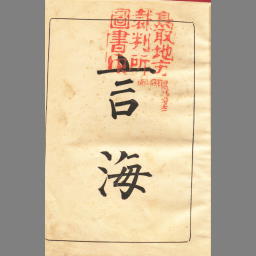 言海
鳥取地方
裁判所
圖書印